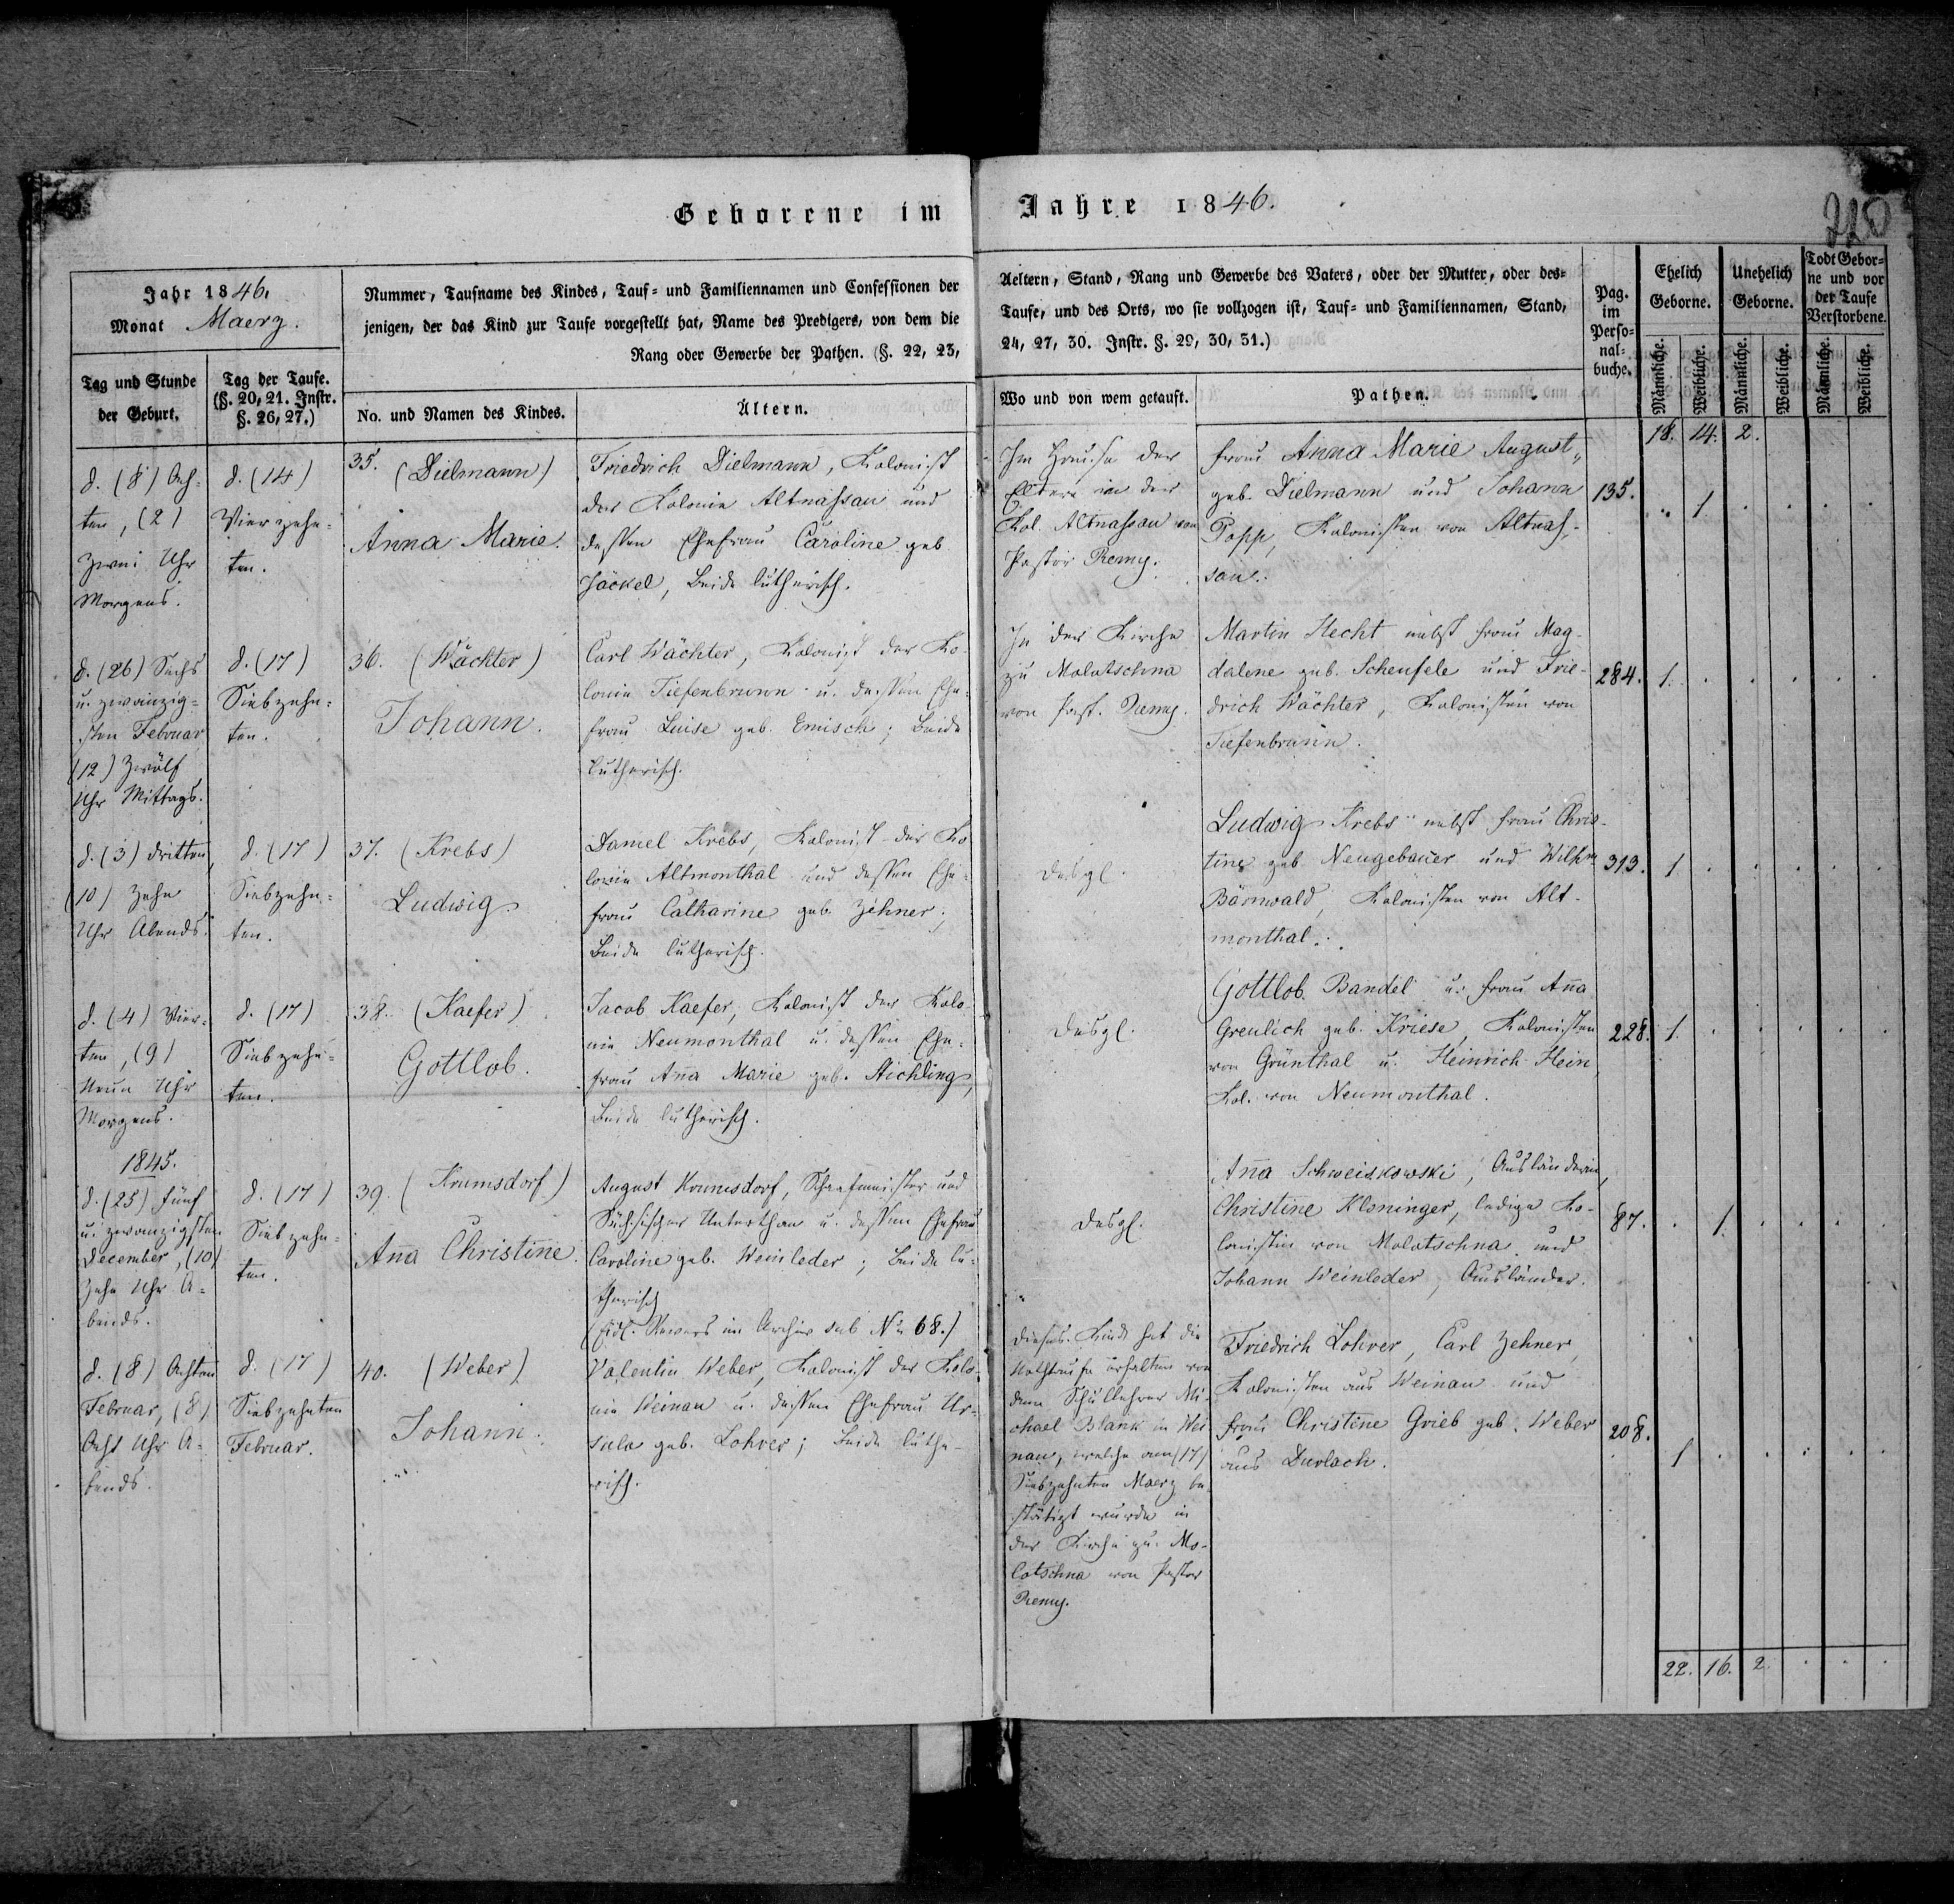 Geborene im Jahre 1846.
220
Jahr 1846.
Monat Maerz.
Tag und Stunde
der Geburt.
Tag der Taufe.
(§. 20, 21. Instr.
§. 26, 27.)
Nummer, Taufname des Kindes, Tauf- und Familiennamen und Confessionen der
jenigen, der das Kind zur Taufe vorgestellt hat, Name des Predigers, von dem die
Rang oder Gewerbe der Pathen. (§. 22, 23,
No. und Namen des Kindes.
Ältern.
Aeltern, Stand, Rang und Gewerbe des Vaters, oder der Mutter, oder des-
Taufe, und des Orts, wo sie vollzogen ist, Tauf- und Familiennamen, Stand,
24, 27, 30. Instr. §. 29, 30, 31.)
Wo und von wem getauft.
Pathen.
Pag.
im
Perso-
nal-
buche.
Ehelich
Geborne.
Unehelich
Geborne.
Todt Gebor-
ne und vor
der Taufe
Verstorbene.
Männliche.
Weibliche.
Männliche.
Weibliche.
Männliche.
Weibliche.
18. 14. 2.
d. (8) Ach-
ten, (2)
Zwei Uhr
Morgens.
d. (14)
Vierzehn-
ten.
35. (Dielmann)
Anna Marie.
Friedrich Dielmann, Kolonist
der Kolonie Altnassau und
dessen Ehefrau Caroline geb
Jäckel, Beide lutherisch.
Im Hause der
Eltern in der
Kol. Altnassau von
Pastor Remy.
Frau Anna Marie August,,
geb. Dielmann und Johann
Popp, Kolonisten von Altnas-
sau.
135.
1.
d. (26) Sechs
u. zwanzig-
sten Februar
(12) Zwölf
Uhr Mittags.
d. (17)
Siebzehn-
ten.
36. (Wächter)
Johann.
Carl Wächter, Kolonist der Ko-
lonie Tiefenbrunn u. dessen Ehe-
frau Luise geb. Emisch; Beide
lutherisch.
In der Kirche
zu Molotschna
von Past. Remy.
Martin Hecht nebst Frau Mag-
dalene geb. Scheufele und Frie-
drich Wächter, Kolonisten von
Tiefenbrunn.
284. 1.
d. (3) dritten,
(10) Zehn
Uhr Abends.
d. (17)
Siebzehn-
ten.
37. (Krebs)
Ludwig.
Daniel Krebs, Kolonist der Ko
lonie Altmonthal und dessen Ehe-
frau Catharine geb. Zehner;
Beide lutherisch.
Desgl.
Ludwig Krebs nebst Frau Chris-
tine geb Neugebauer und Wilhm
Bärnwald, Kolonisten von Alt-
monthal.
313. 1
d. (4) Vier-
ten, (9)
Neun Uhr
Morgens.
d. (17)
Siebzehn-
ten.
38. (Kaefer)
Gottlob.
Jacob Kaefer, Kolonist der Kolo
nie Neumonthal u. dessen Ehe-
frau Anna Marie geb. Aichling,
Beide lutherisch.
Desgl.
Gottlob Bandel u. Frau Anna
Greulich geb. Kriese, Kolonisten
von Grünthal u. Heinrich Hein,
Kol. von Neumonthal.
228. 1.
1845.
d. (25) Fünf
u. zwanzigsten
December, (10)
Zehn Uhr A-
bends.
d. (17)
Siebzehn-
ten.
39. (Krumsdorf)
Anna Christine.
August Krumsdorf, Schafmeister und
Sächsischer Unterthan u. dessen Ehefrau
Caroline geb. Weinleder; Beide lu-
therisch
Revers im Archiv sub No 68.)
Desgl.
Anna Schweiskowski, Ausländerin,
Christine Kloninger, ledige Ko-
lonistin von Molotschna und
Johann Weinleder, Ausländer.
87. 1.
d. (8) Achten
Februar, (8)
Acht Uhr A-
bends.
d. (17)
Siebzehnten
Februar.
40. (Weber)
Johann.
Valentin Weber, Kolonist der Kolo-
nie Weinau u. dessen Ehefrau Ur-
sula geb. Lohrer; Beide luthe-
risch.
Dieses Kind hat die
Nothtaufe erhalten von
dem Schullehrer Mi-
chael Blank in Wei
nau, welche am (17)
Siebzehnten Maerz be
stätigt wurde in
der Kirche zu Mo-
lotschna von Pastor
Remy.
Friedrich Lohrer, Carl Zehner,
Kolonisten aus Weinau und
Frau Christine Grieb geb. Weber
aus Durlach.
208.
1
22. 16. 2.